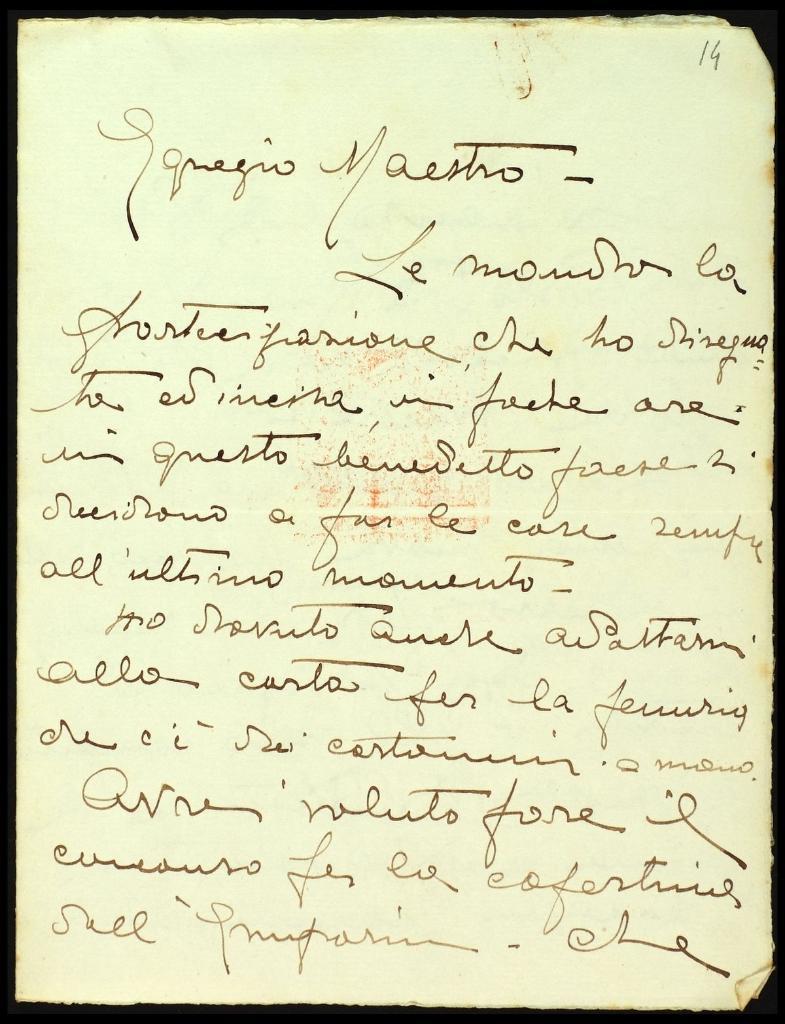 14
Egregio Maestro -
Le mando la
partecipazione, che ho disegna=
ta ed incisa, in poche ore.
in questo benedetto paese si
decidono a far le cose sempre
all'ultimo momento -
Ho dovuto anche adattarmi
alla carta per la penuria
che c'è dei cartoncini. a mano.
Avrei voluto fare il
concorso per la copertina
dell'Emporium - che